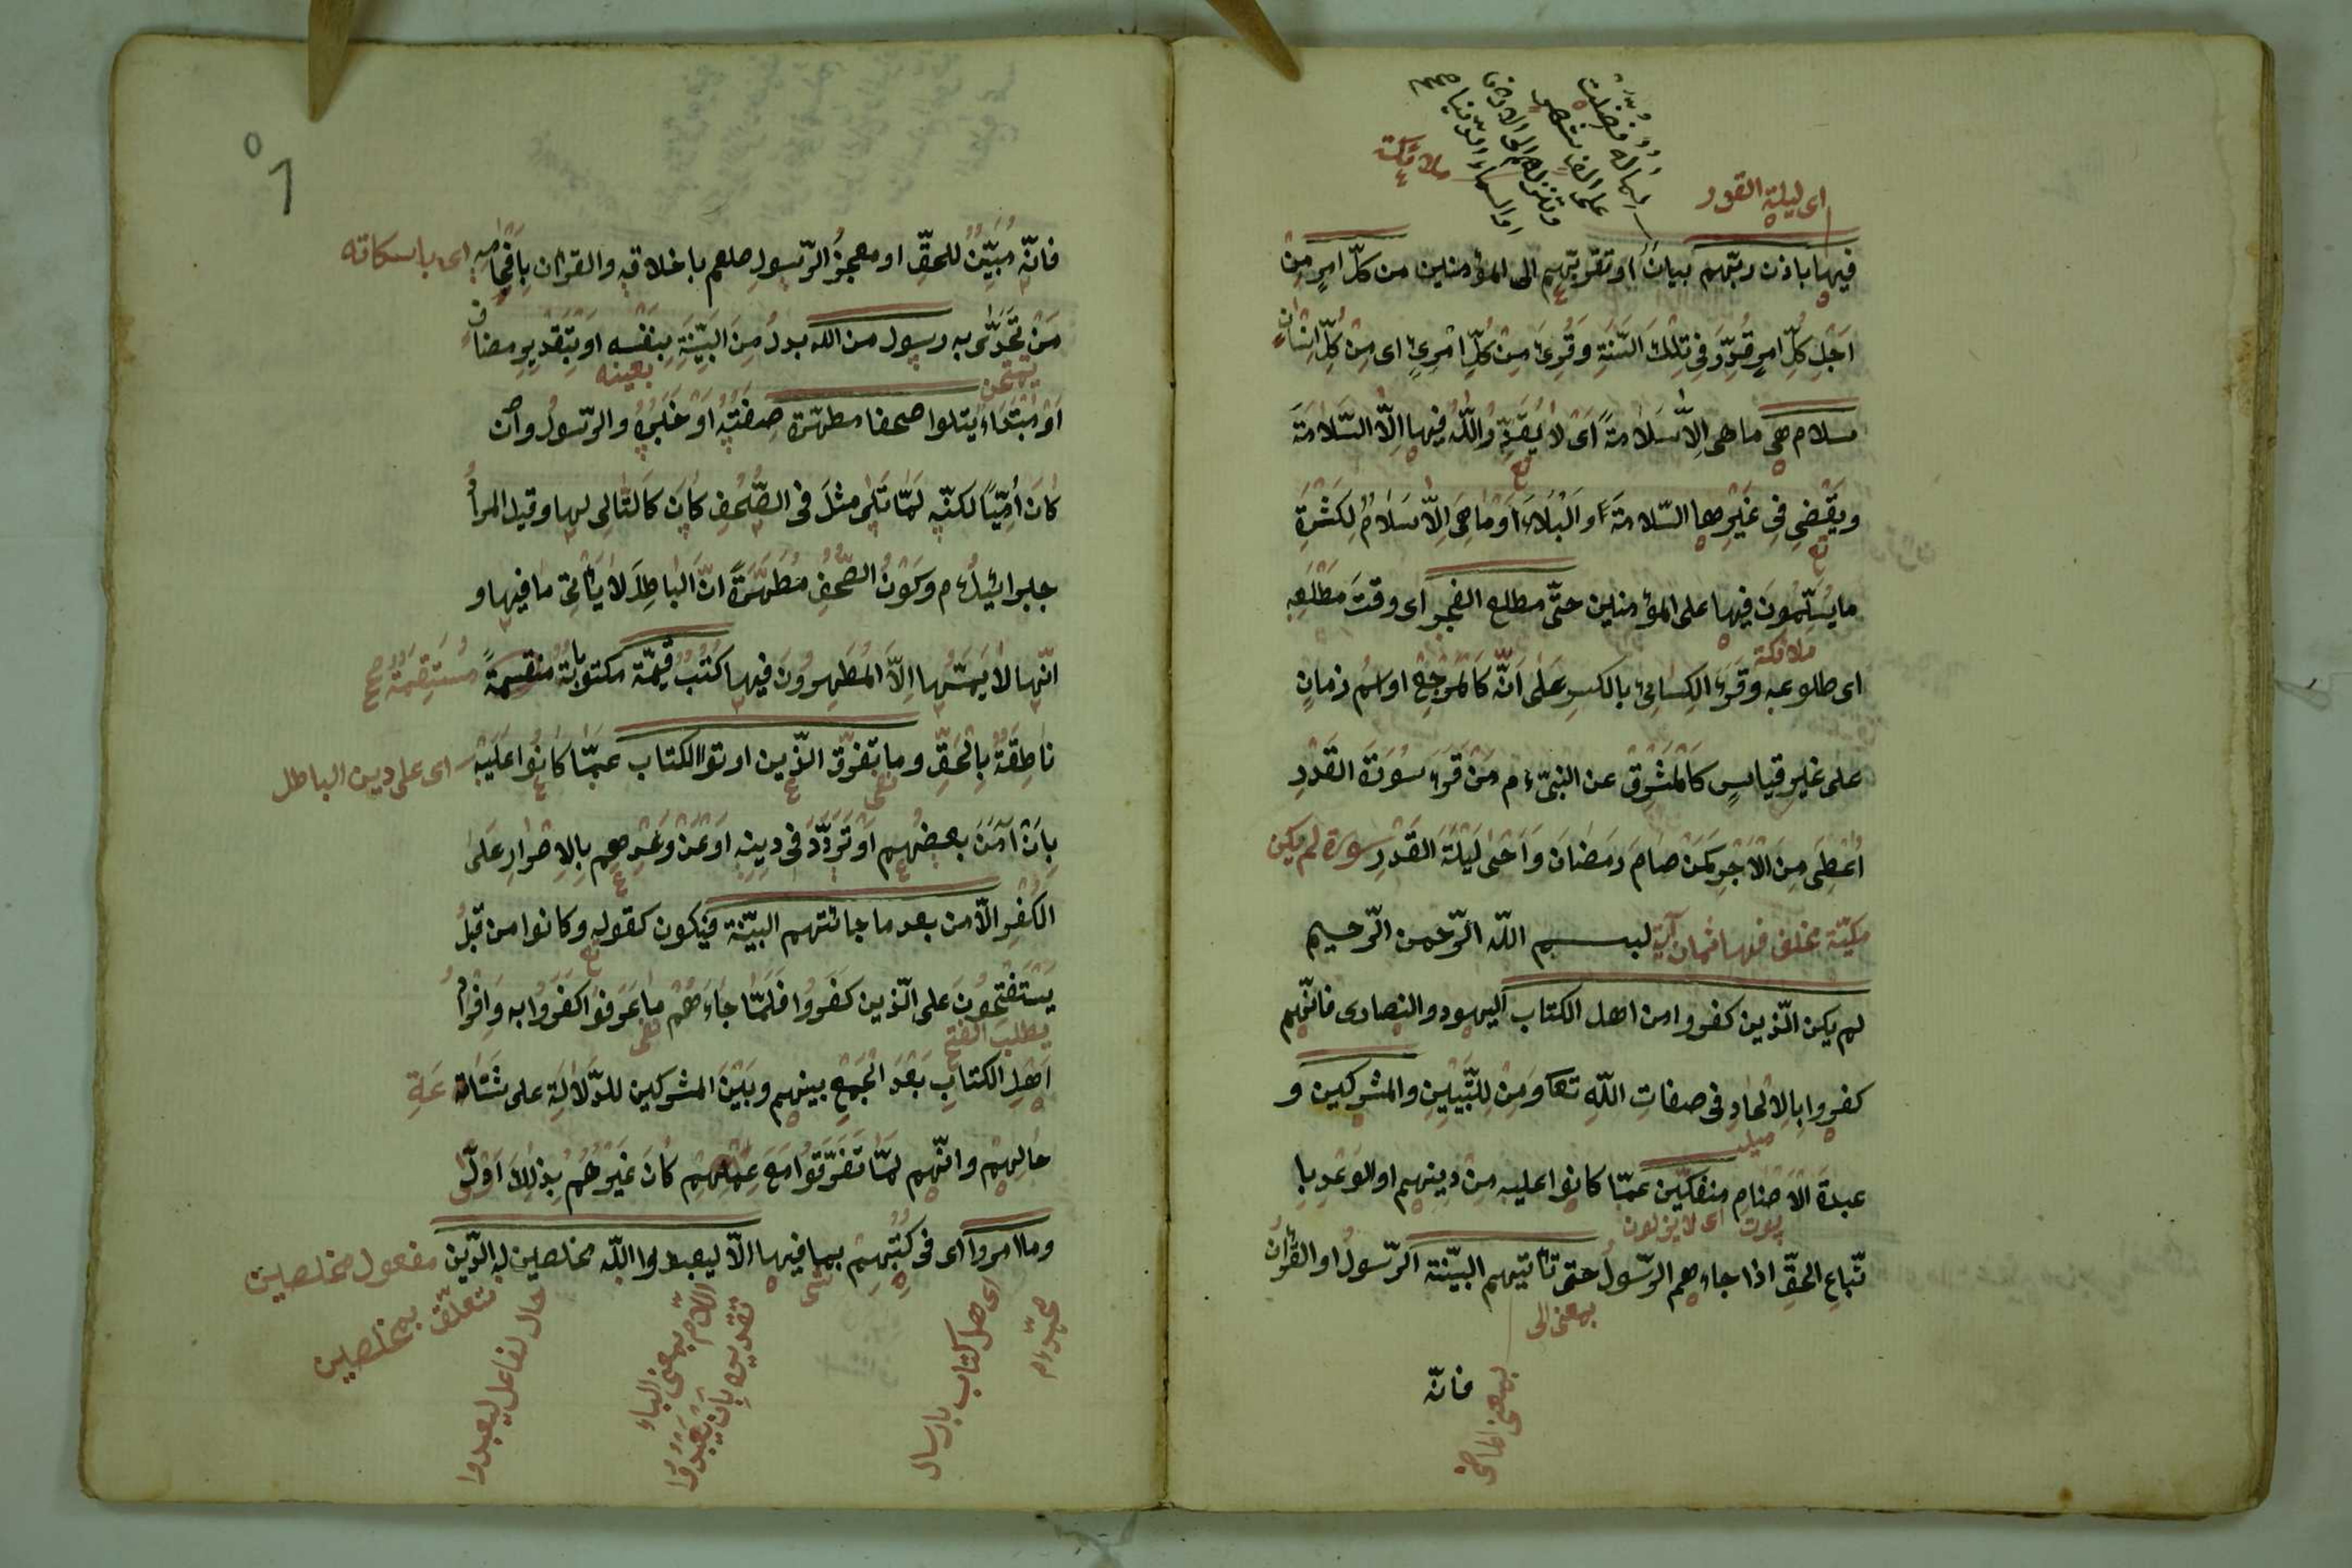 اى ليلة القدر
ملائكة
فيها باذن ربّهم بيان او تقرّبهم الى المؤمنين من كلّ امر من
اَجْلِ كلّ امر قُدِّرَ فى تلك السّنة وقُرِئَ من كلّ امْرِئٍ اى من كلّ انسان
سلام هى ما هى الّا سلامة اى لا يقدّر اللّه فيها الّا السّلامة
ويقضى فى غيرها السّلامة والبلاء او ما هى الّا سلام لكثرة
ما يسلّمون فيها على المؤمنين حتّى مطلع الفجر اى وقت مطلعه
ملائكة
اى طلوعه وقرء الكسائى بالكسر على انّه كالمرجع او اسم زمان
على غير قياس كالمشرق عن النبىّ ءم من قرء سورة القدر
اعطى من الاجر كمن صام رمضان واحيى ليلة القدر سورة لم يكن
مكيّة مختلف فيها ثمان آية بسم اللّه الرّحمن الرّحيم
لم يكن الّذين كفروا من اهل الكتاب اليهود والنصارى فانّهم
كفروا بالالحاد فى صفات اللّه تعا ومن للتّبيين والمشركين و
عبدة الاصنام منفكّين عمّا كانوا عليه من دينهم او الوعد با
اى لا يزلون
تّباع الحقّ اذا جاءهم الرّسول حتّى تأتيهم البيّنة الرّسول او القرأن
بمعنى الى
بمعنى الماضى
فانّه
فانّه مبيّن للحقّ او معجز الرّسول صلعم باخلاقه والقرأن بافحامه اى باسكاته
من تحدّى به رسول من اللّه بدل من البيّنة بنفسه او بتقدير مضاف
بعينه
او مبتداء يتلوا صحفا مطهّرة صفته او خبره والرّسول وان
كان أمّيّا لكنّه لمّا تلى مثل فى الصّحف كان كالتّالى لها وقيل المرأ
جبرائيل ءم وكون الصّحف مطهّرة انّ الباطل لا يأتى ما فيها و
انّها لا يمسّها الّا المطهرون فيها كتب قيّمة مكتوبات مستقيمة
ناطقة بالحقّ وما تفرّق الّذين اوتوا الكتاب عمّا كانوا عليه اى على دين الباطل
نفى
بان آمن بعضهم او تردّد فى دينه او عن وعدهم بالاصرار على
الكفر الّا من بعد ما جائتهم البيّنة فيكون كقوله وكانوا من قبل
يستفتحون على الّذين كفروا فلمّا جاءهم ما عرفوا كفروا به وافرأ
يطلب الفتح
اهل الكتاب بعد الجمع بينهم وبين المشركين للدّلالة على شناعة
حالهم وانّهم لمّا تفرّقوا مع علمهم كان غيرهم بذلك اولى
وما امروا اى فى كتبهم بما فيها الّا ليعبدوا اللّه مخلصين له الدّين مفعول مخلصين
متعلّق بمخلصين
حال لفاعل ليعبدوا
اللام بمعنى الباء
تقديره بان يعبدوا
اى اهل كتاب بارسال
محمّد ءم